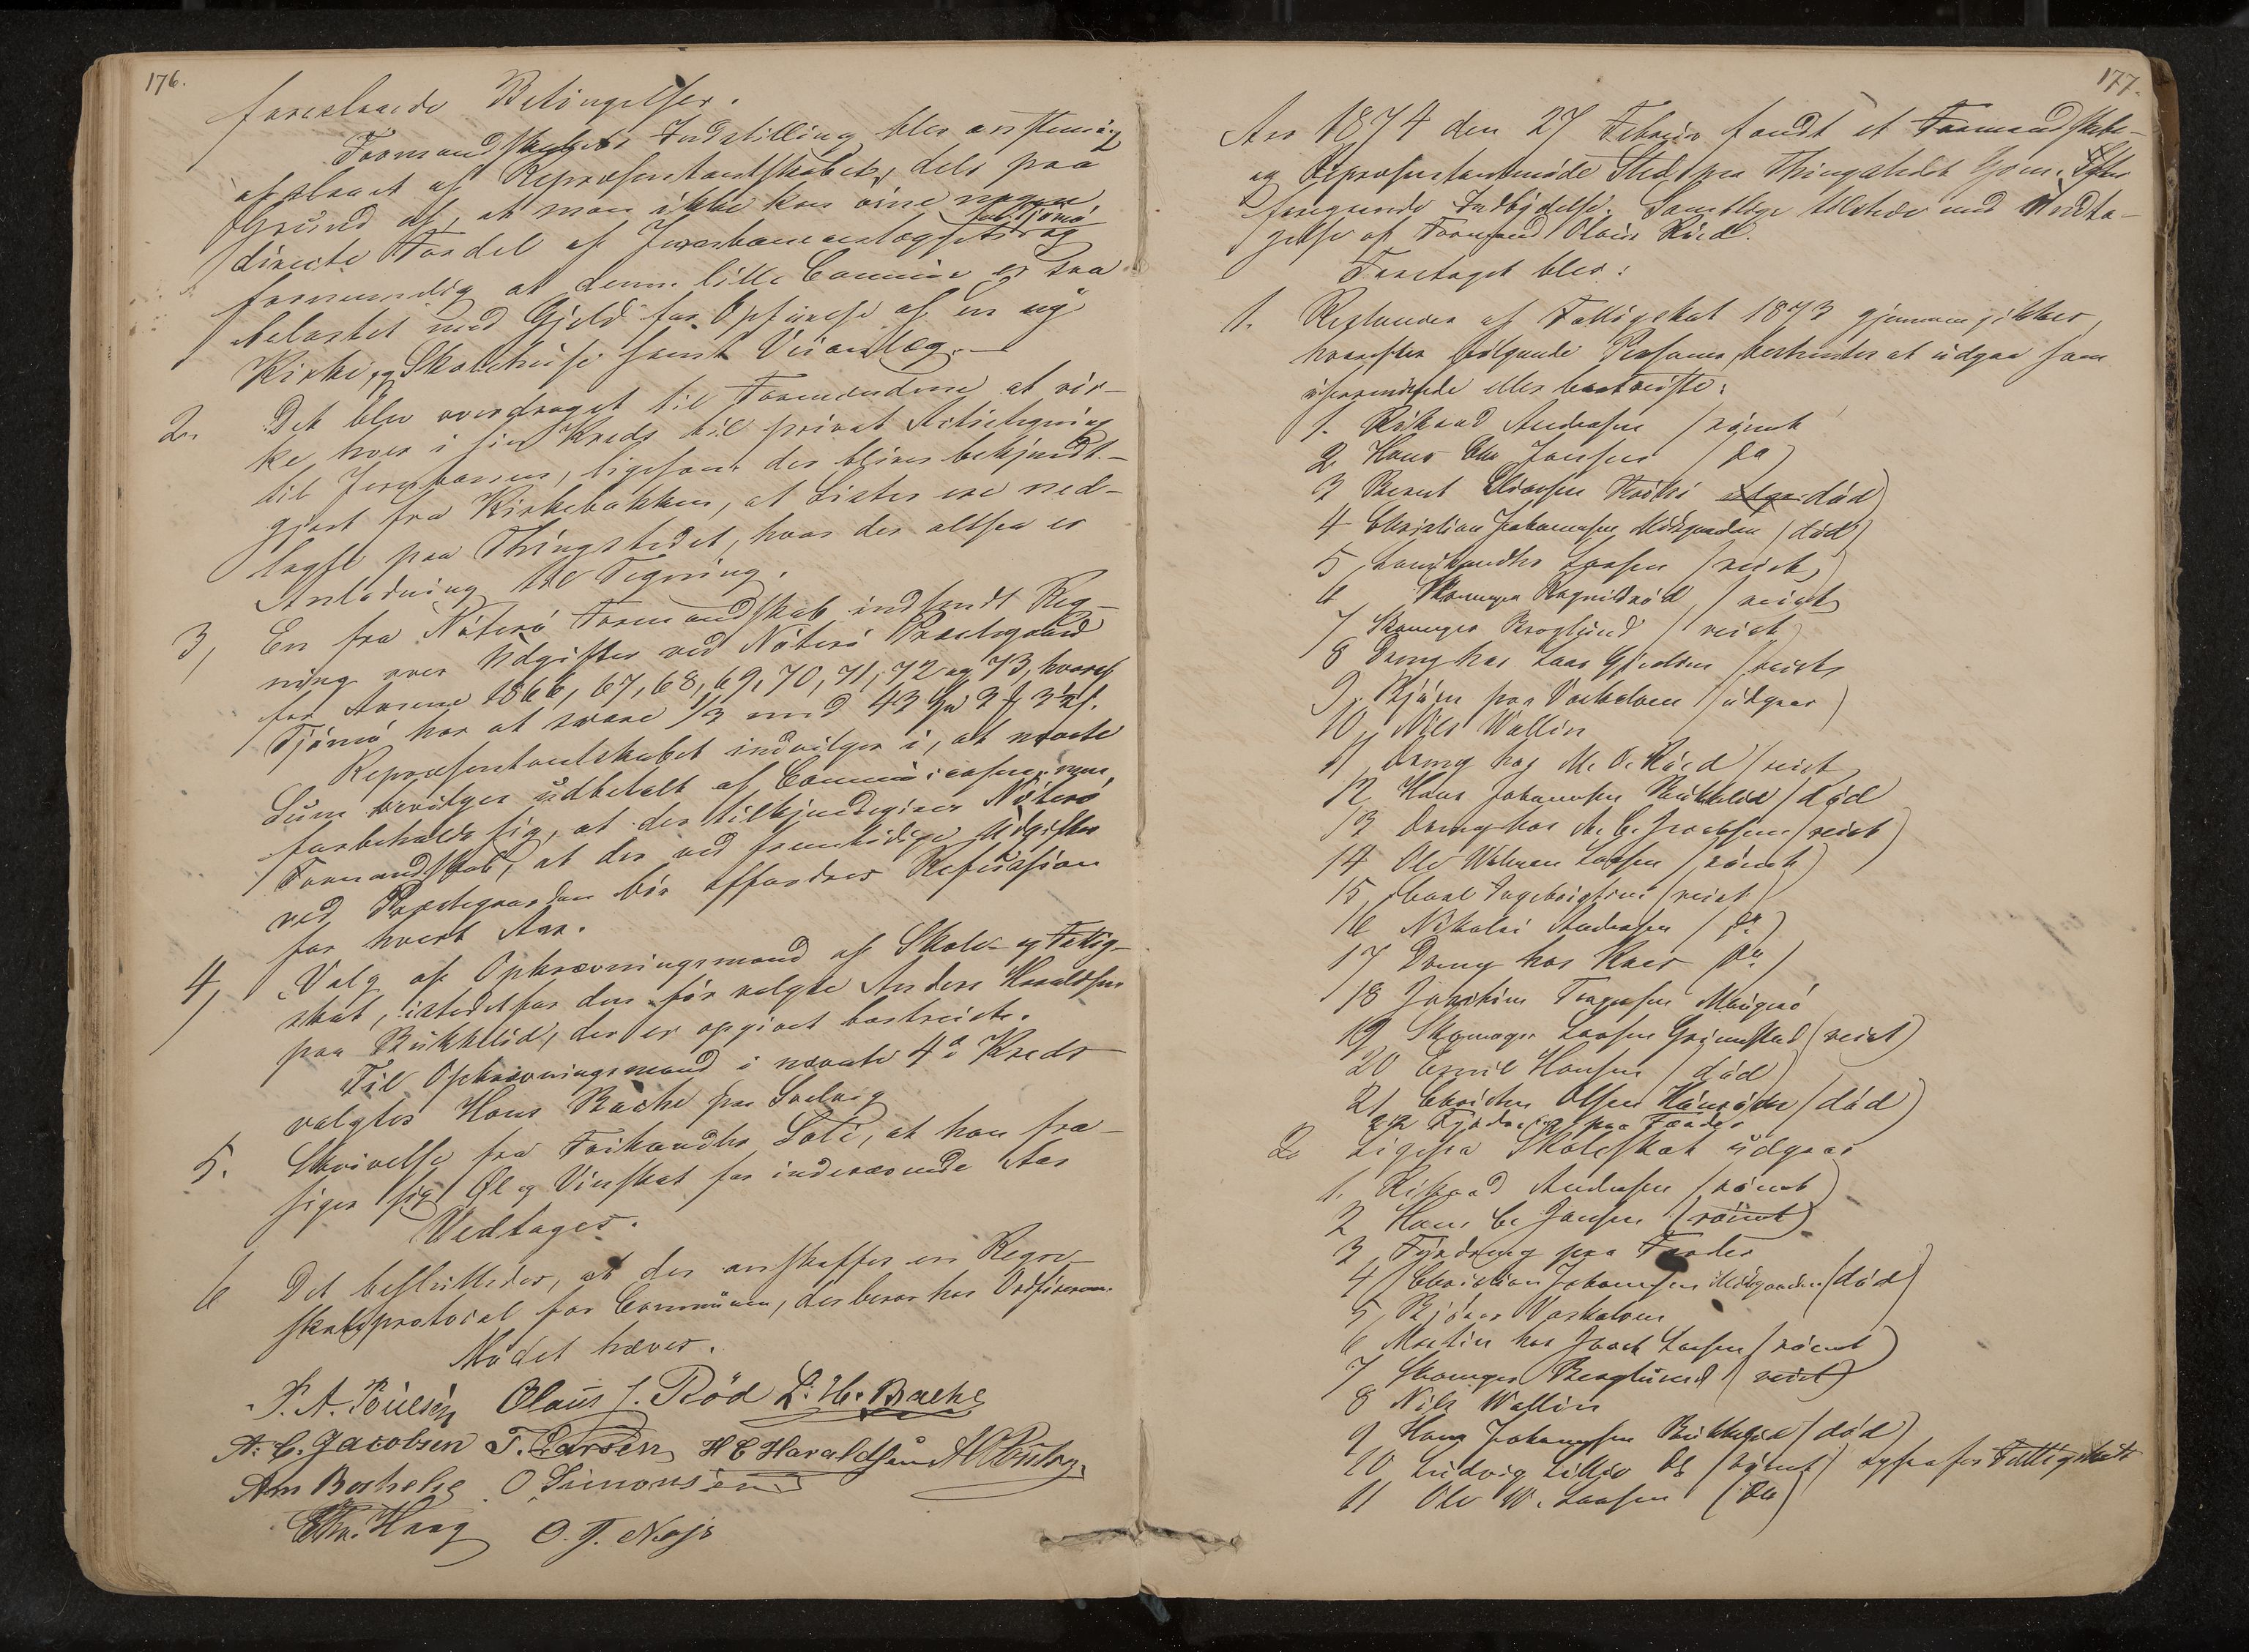 176.
foreslaaede Betingelser.
Formandskabets Indstilling blev enstemmig
afslaaet af Repræsentantskabet, dels paa
Grund af, at man ikke kan øine nogen
directe Fordel af Jernbaneanlægget og
for Tjømø
fornemmelig at denne lille Commune er saa
belastet med Gjæld for Opførelse af en ny
Kirke, og Skolehuse samt Veianlæg.
2. Det blev overdraget til Formændene at vir-
ke, hver i sin Kreds til privat Actietegning
til Jernbanen, ligesom der bliver bekjendt-
gjort fra Kirkebakken, at Lister ere ned-
lagte paa Thingstedet, hvor der altsaa er
Anledning til Tegning.
3, En fra Nøterø Formandskab indsendt Reg-
ning over Udgifter ved Nøterø Præstegaard
for Aarene 1866, 67, 68, 69, 70, 71, 72 og 73, hvoraf
Tjømø har at svare 1/3 med 43 Spd 2 3 s.
Repræsentantskabet indvilger i, at nævnte
Sum bevilges udbetalt af Communecassen, men
forbeholder sig, at der tilkjendegives Nøterø
Formandskab, at der ved fremtidige Udgifter
ved Præstegaarden bør affordres Refusion
for hvert Aar.
4, Valg af Opkrævningsmand af Skole- og Fattig-
skat, istedetfor den før valgte Anders Haraldsen
paa Bukkelid, der er opgivet bortreist.
Til Opkrævningsmand i nævnte 4de Kreds
valgtes Hans Bache paa Solvig
5. Skrivelse fra Frihandler Loli, at han fra-
siger sig Øl og Vinskat for indeværende Aar
Vedtages.
6 Det besluttedes, at der anskaffes en Regn-
skabsprotocol for Communen, der beror hos Ordføreren.
Mødet hæves.
P. A. Poulsen Olaus J. Röd L. H. Bache
A. C. Jacobsen T. Larsen H C Haraldsen
Am Bache O. Simonsen
Chr. Haag O. T. Mojs
177.
Aar 1874 den 27 Februar fandt et Formandskabs-
og Repræsentantmøde Sted paa Thingstedet Gjon. Efter
foregaaende Indbydelse. Samtlige tilstede med Undta-
gelse af Formand Olaus Röed.
Foretaget blev:
1. Restancer af Fattigskat 1873 gjennemgikkes,
hvorefter følgende Personer bestemtes at udgaa som
uformuende eller bortreiste:
1. Rikard Andersen (rømt)
2 Hans Chr Jansen (do)
3 Bernt Eliassen død)
4 Christian Johannesen Midtgaarden (død)
5, Landhandler Larsen (reist)
6 Skomager Ragnildrød (reist)
7 Skomager Berglund (reist)
8 Dreng hos Lars Gjertsen (reist)
9, Bjørn paa Vaskalven (udgaar)
10, Nils Wallin
11 Dreng hos M. O. Röed (reist
12 Hans Johannesen Bukkelid (død
13 Dreng hos A. C. Jacobsen (reist)
14 Ole Wilhem Larsen (rømt)
15, Carl Ingebrigtsen (reist)
16 Nikolai Andersen (do)
17 Dreng hos Kaes (do)
18 Joachim Torgersen Maagerø
19 Skomager Larsen Grimestad (reist)
20 Emil Hansen (død)
21 Christen Olsen (død)
22 Fyrdreng paa Færder
2. Ligesaa Skoleskat udgaar
1. Rikard Andersen (rømt)
2 Hans C. Jansen (rømt)
3 Fyrdreng paa Færder
4 Christian Johannesen Midtgaarden (død)
5, Bjørn Vaskalven
6 Martin hos Jacob Larsen (rømt)
7 Skomager Berglund (reist)
8 Nils Wallin
9 Hans Johannesen Bukkelid (død)
10 Ludvig (rømt) ogsaa for Fattigskat
11 Ole W. Larsen (do)